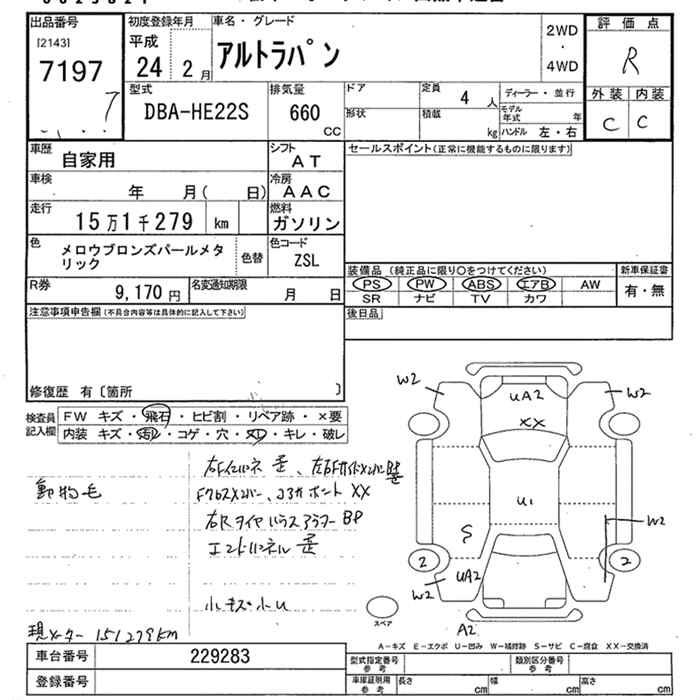 出品番号 初度登録年月 車名・グレード 2WD ・ 4WD 評価点
[2143] 平成 アルトラパン R
7197 24 2 月
7 型式 排気量 ドア 定員 4 人 ディーラー・並行 外装 内装
DBA-HE22S 660 CC 形状 積載 kg モデル年式 年 C C
ハンドル 左・右
車歴 自家用 シフト AT セールスポイント(正常に機能するものに限ります)
車検 年 月( 日) 冷房 AAC
走行 15万1千279 km 燃料 ガソリン
色 メロウブロンズパールメタリック 色替 色コード ZSL
装備品 (純正品に限り○をつけてください) 新車保証書
R券 9,170 円 名変通知期限 月 日 PS PW ABS エアB AW 有・無
SR ナビ TV カワ
注意事項申告欄(不具合内容等は具体的に記入して下さい) 後日品
修復歴 有〔箇所 〕
検査員記入欄 FW キズ・飛石・ヒビ割・リペア跡・×要
内装 キズ・汚レ・コゲ・穴・スレ・キレ・破レ
動物毛
XX
BP
小キズ小U
現メーター 151279KM
W2 UA2 W2
XX
U1
S W2
2 2
UA2
W2
スペア
A2
A-キズ E-エクボ U-凹み W-補修跡 S-サビ C-腐食 XX-交換済
車台番号 229283 型式指定番号 参考 類別区分番号 参考
登録番号 車庫証明用 参考 長さ cm 幅 cm 高さ cm